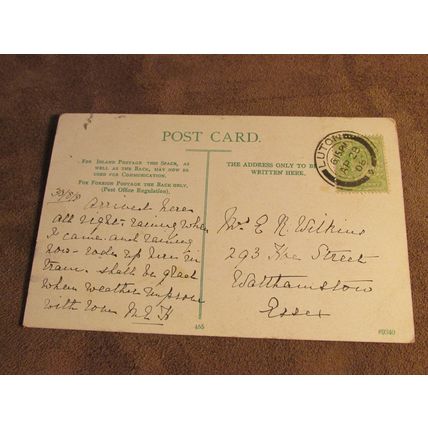 POST CARD.
FOR INLAND POSTAGE THIS SPACE, AS
WELL AS THE BACK, MAY NOW BE
USED FOR COMMUNICATION.
FOR FOREIGN POSTAGE THE BACK ONLY.
(Post Office Regulation).
THE ADDRESS ONLY TO BE
WRITTEN HERE.
LUTON
AP 29
Arrived here
all right. raining when
I came and raining
now. rode up here in
tram. shall be glad
when weather improve
with love
Mrs E. N. Wilkins
293 Street
Walthamstow
Essex
465